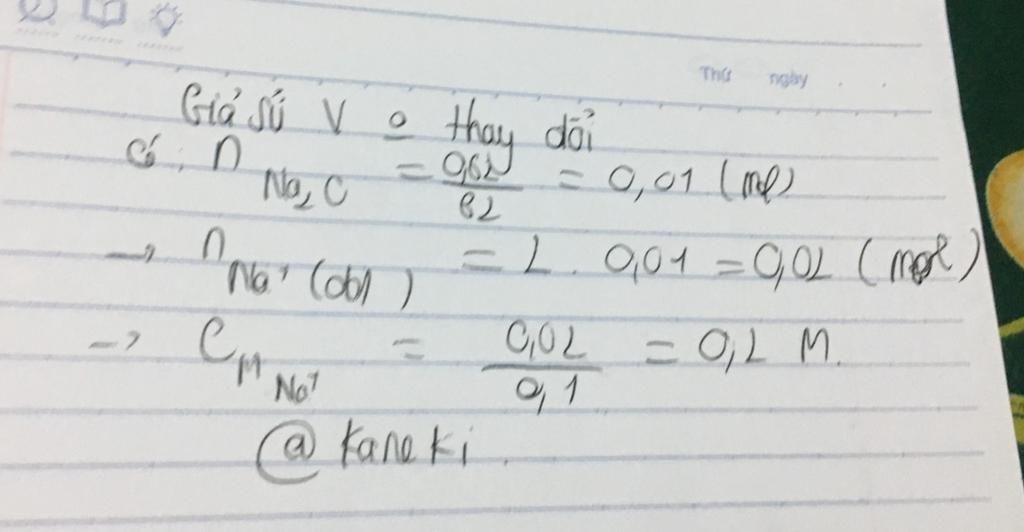 Thứ ngày . .
Giả sử V o thay đổi
Có : n Na2O = 0,62/62 = 0,01 (mol)
→ n Na+ (bđ) = 2 . 0,01 = 0,02 (mol)
→ CM Na+ = 0,02/0,1 = 0,2 M.
@ kaneki .